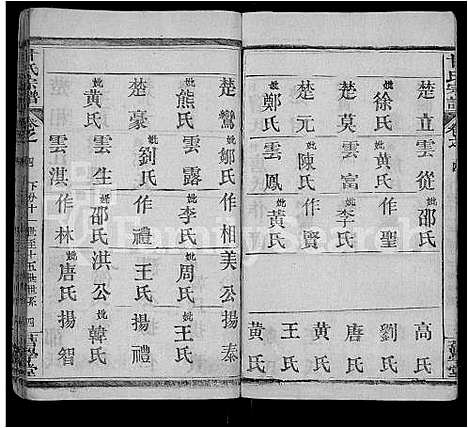 氏宗譜
卷之
楚立 雲從 妣邵氏 高氏
妣徐氏 妣黄氏 作聖 劉氏
楚莫 雲富 妣李氏 唐氏
楚元 妣陳氏 作賢 黄氏
妣鄭氏 雲鳳 妣黄氏 王氏
黄氏
楚鸞 妣鄒氏 作相 美公 揚奉
妣熊氏 雲露 妣李氏 妣周氏 妣王氏
楚豪 妣劉氏 作禮 王氏 揚禮
妣黄氏 雲生 妣邵氏 洪公 妣韓氏
雲淇 作林 妣唐氏 揚智
甘氏宗譜
卷之四 下分十一世至十五世世系 四
堂
FamilySearch